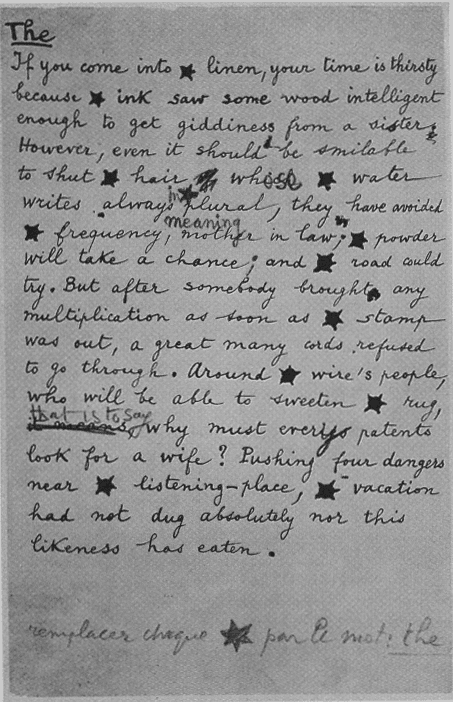 The
If you come into ★ linen, your time is thirsty
because ★ ink saw some wood intelligent
enough to get giddiness from a sister.
However, even it should be smilable
to shut ★ hair whose ★ water
writes always in ★ plural, they have avoided
★ frequency, meaning mother in law; ★ powder
will take a chance; and ★ road could
try. But after somebody brought any
multiplication as soon as ★ stamp
was out, a great many cords refused
to go through. Around ★ wire's people,
who will be able to sweeten ★ rug,
that is to say,
it means, why must every patents
look for a wife? Pushing four dangers
near ★ listening-place, ★ vacation
had not dug absolutely nor this
likeness has eaten.
remplacer chaque ★ par le mot: the